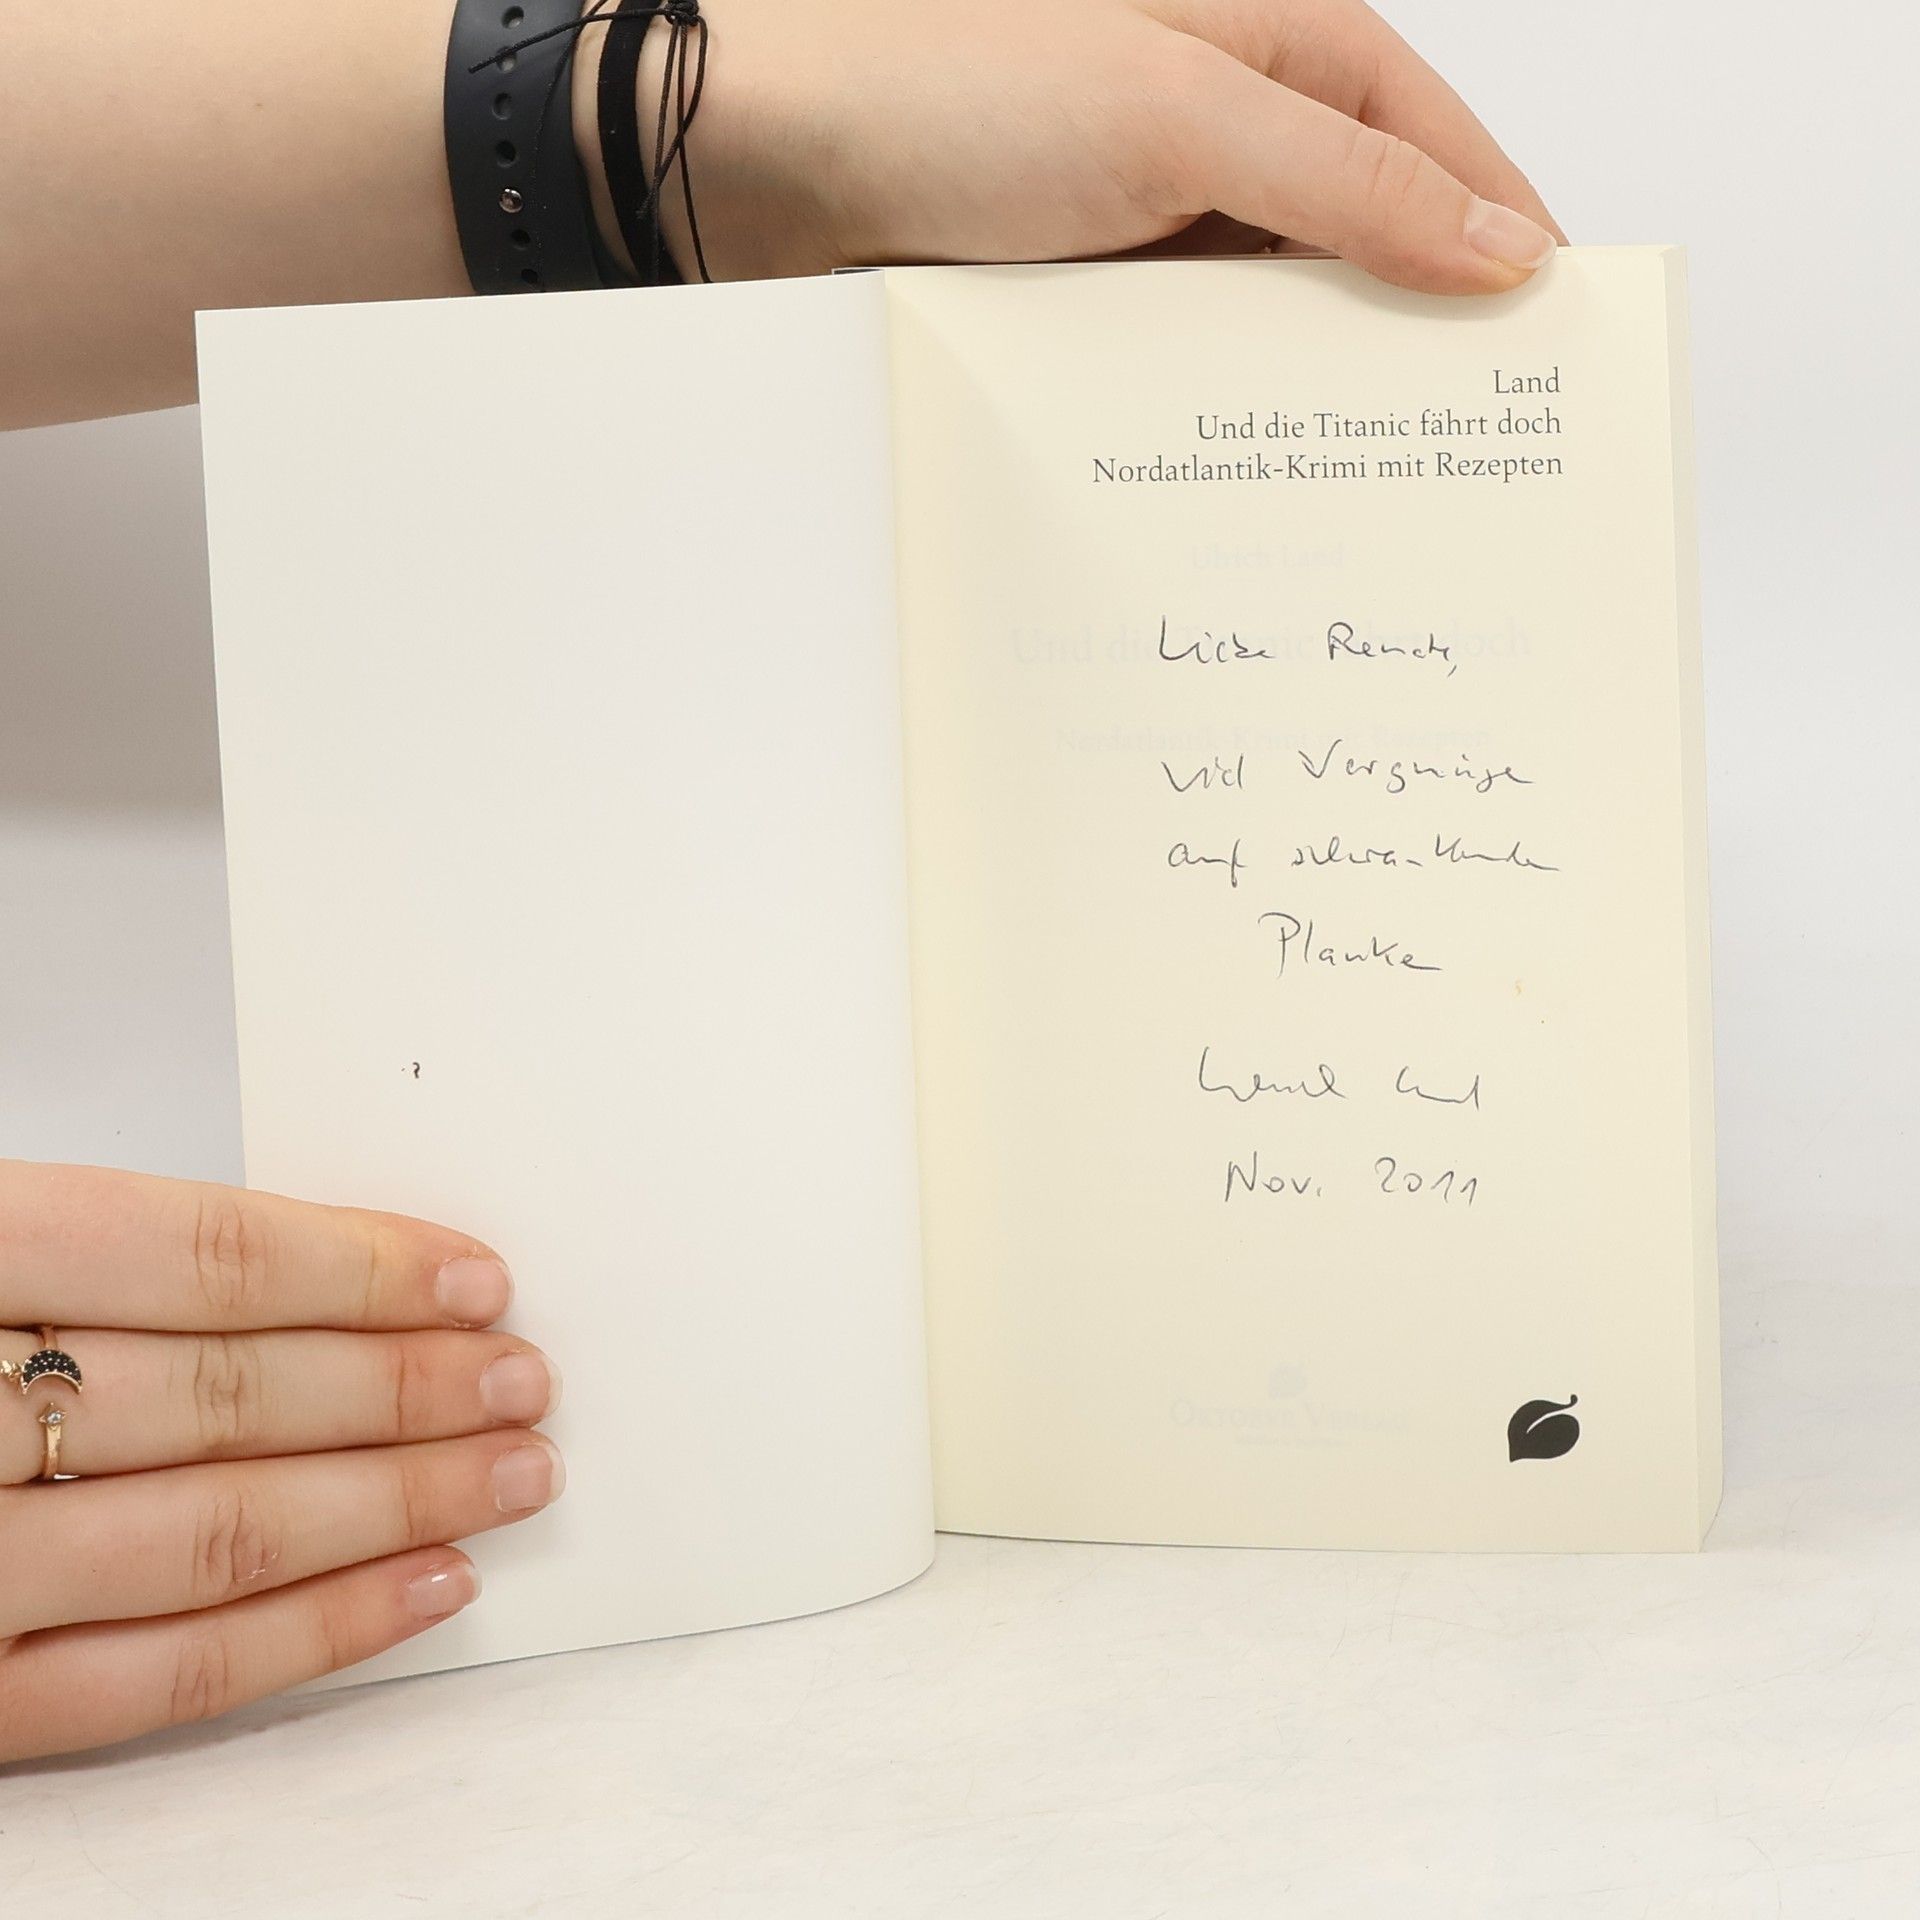 Land
Und die Titanic fährt doch
Nordatlantik-Krimi mit Rezepten
Ulrich Land
Und die Titanic fährt doch
Nordatlantik-Krimi mit Rezepten
Liebe Renate,
viel Vergnügen
auf schwankenden
Planken
Land
Nov. 2011
Oktober Verlag